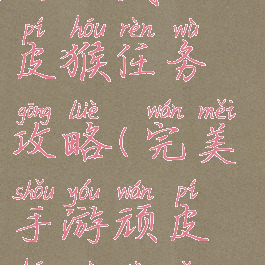 pí hóu rèn wù
皮猴任务
gōng lüè wán měi
攻略(完美
shǒu yóu wán pí
手游顽皮